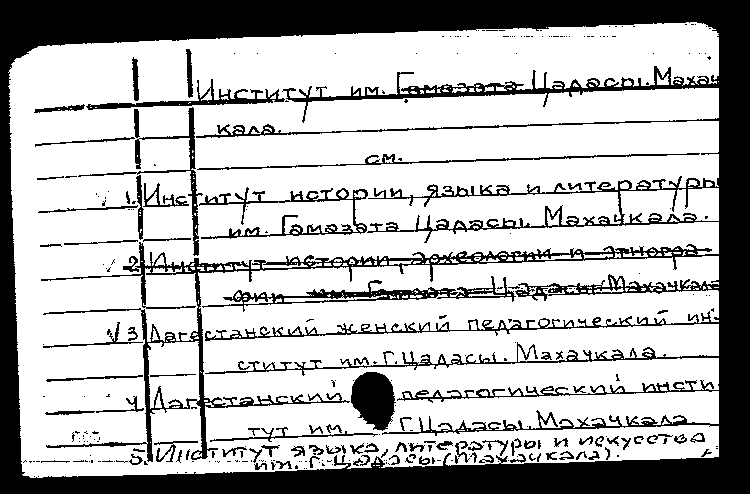 Институт им. Гамзата Цадасы. Махач
кала.
см.
1. Институт истории, языка и литературы
им. Гамзата Цадасы. Махачкала.
2. Институт истории, археологии и этногра-
фии им. Гамзата Цадасы Махачкала
√ 3 Дагестанский женский педагогический ин-
ститут им. Г. Цадасы. Махачкала.
4. Дагестанский педагогический инсти
тут им. Г. Цадасы. Махачкала.
5. Институт языка, литературы и искусства
им. Г. Цадасы (Махачкала).